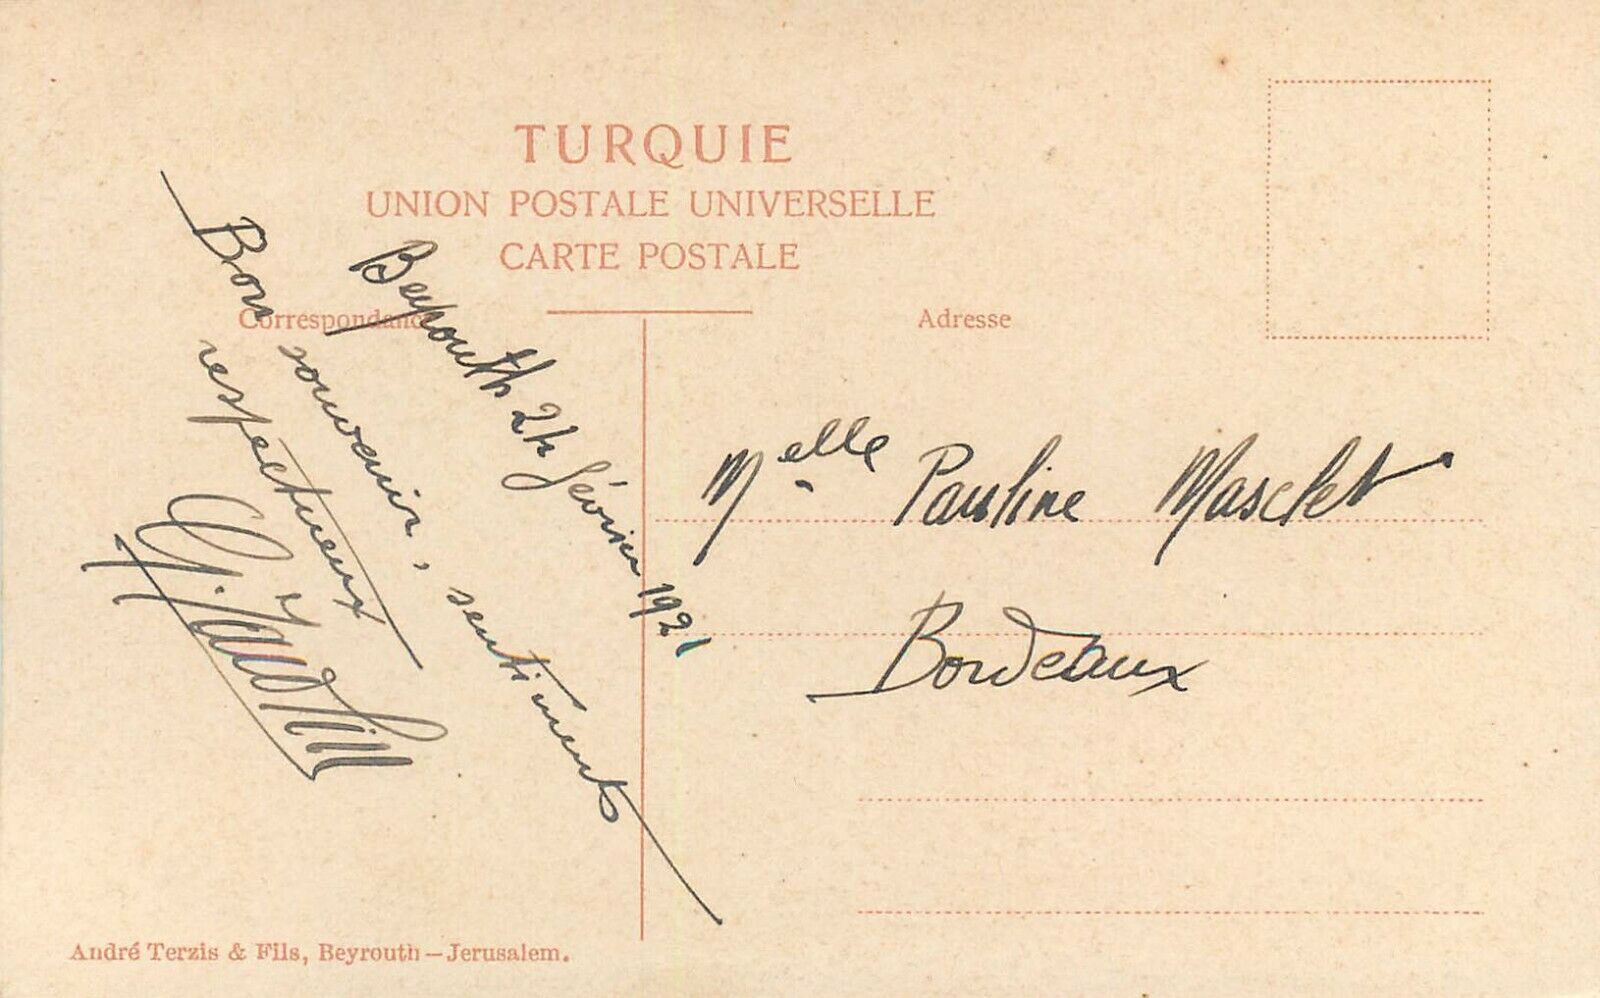 TURQUIE
UNION POSTALE UNIVERSELLE
CARTE POSTALE
Correspondance
Adresse
Beyrouth 24 février 1921
Bon souvenir, sentiments
respectueux
Melle Pauline Masclet
Bordeaux
André Terzis & Fils, Beyrouth — Jerusalem.